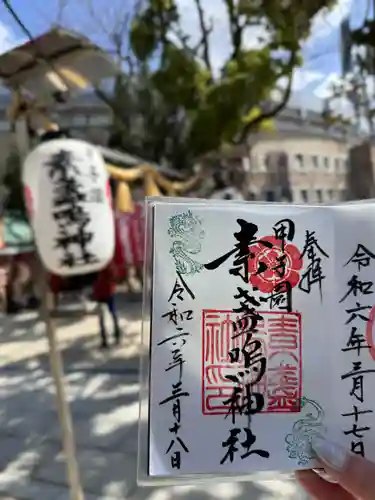 奉拝
甲子園
素盞嗚神社
令和六年三月十八日
令和六年三月十七
素盞嗚神社